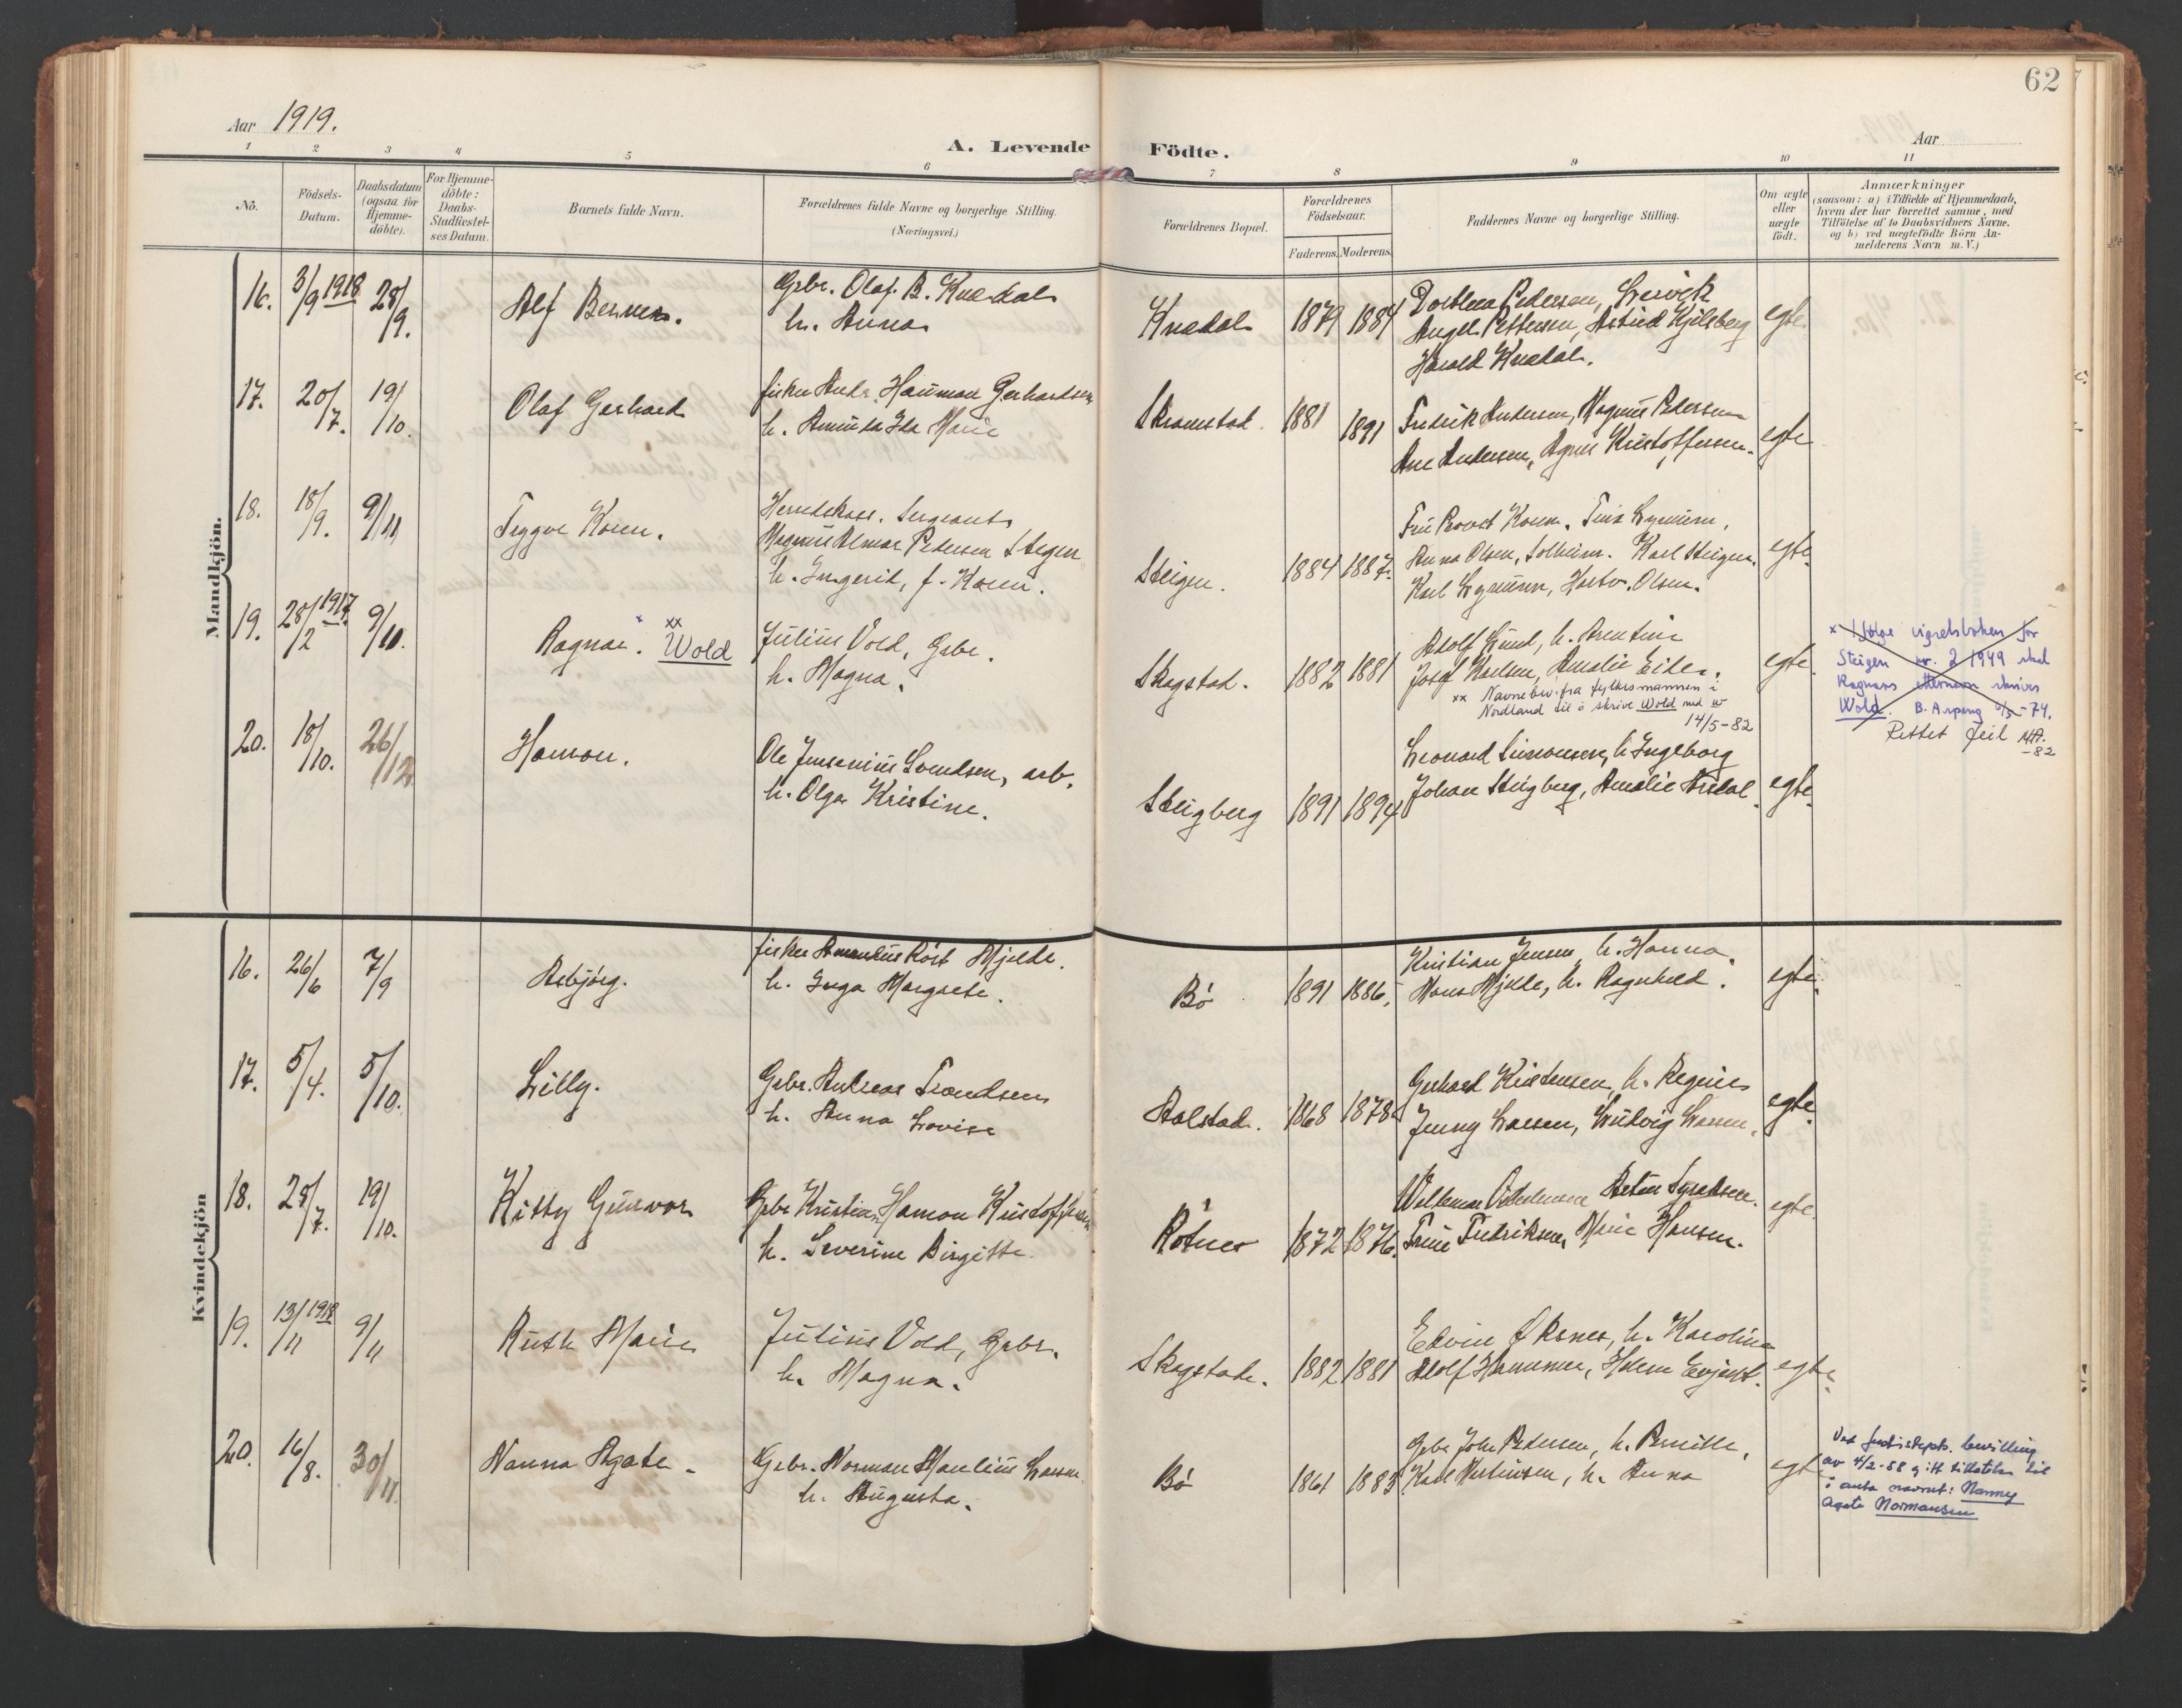 62
Aar 1919.
A. Levende Födte.
Aar
1 2 3 4 5 6 7 8 9 10 11
No.
Födsels-
Datum.
Daabsdatum
(ogsaa for
Hjemme-
döbte).
For Hjemme-
döbte:
Daabs-
Stadfæstel-
ses Datum.
Barnets fulde Navn.
Forældrenes fulde Navne og borgerlige Stilling.
(Næringsvei.)
Forældrenes Bopæl.
Forældrenes
Födselsaar.
Faderens. Moderens.
Faddernes Navne og borgerlige Stilling.
Om ægte
eller
uægte
födt.
Anmærkninger
(saasom: a) i Tilfælde af Hjemmedaab,
hvem der har forrettet samme, med
Tilföielse af to Daabsvidners Navne,
og b) ved uægtefödte Börn An-
melderens Navn m. V.)
Mandkjön.
16. 3/9 1918 28/9.
Alf Berner.
Grbr. Olaf B. Knædal
h. Anna
Knædal 1879 1884
Dorthea Pedersen, Lervik
Angel Pettersen, Astrid Kjilsberg
Harald Knædal.
egte.
17. 20/7. 19/10.
Olaf Gerhard
fisker Andr. Hauman Gerhardsen
h. Aminda Ida Marie
Skramstad. 1881 1891
Fredrik Andersen, Magnus Pedersen
Ane Andersen, Agnes Kristoffersen.
egte
18. 18/9. 9/11
Tryggve Koren.
Herredskass. Sergeant
Magnus Almar Pedersen Steigen
h. Ingerid, f. Koren.
Steigen. 1884 1887.
Fru Provst Koren, Fru Lyniren,
Anna Olsen, Solheim. Karl Steigen,
Karl Lyniren, Hartv. Olsen.
egte.
19. 28/2 1917. 9/11.
Ragnar. x xx Wold
Julius Vold, Grbr.
h. Magna.
Skagstad. 1882 1881
Adolf Lund, h. Arentine
Josef Karlsen, Amalie Eiter.
xx Navnebev. fra fylkesmannen i
Nordland til å skrive Wold med w
14/5-82
egte
x Ifølge vigselsboken for
Steigen nr. 2 1949 skal
Ragnars etternavn skrives
Wold. B. Arpang 6/5-74.
Rettet feil MA.
-82
20. 18/10. 26/12
Hamon.
Ole Jensenius Svendsen, arb.
h. Olga Kristine.
Steigberg 1891 1894
Leonard Simonsen, h. Ingeborg
Johan Steigberg, Amalie Ardal.
egte.
Kvindekjön
16. 26/6 7/9
Asbjörg.
fisker Amandus Röst Mjelde.
h. Inga Margrete.
Bö 1891 1886.
Kristian Jensen, h. Hanna.
Mons Mjelde, h. Ragnhild.
egte.
17. 5/4. 5/10.
Lilly.
Grbr. Andreas Trondsen
h. Anna Lovise
Aalstad. 1868 1878
Gerhard Kristensen, h. Regine
Jenny Larsen, Ludvig Larsen.
egte.
18. 28/7. 19/10.
Kitty Gunvor
Grbr Kristian Hamon Kristoffersen
h. Severine Birgitte.
Rötnes 1872 1876.
Trine Fredriksen, Marie Hansen.
egte.
19. 13/11 1918 9/11
Ruth Marie
Julius Vold, Grbr.
h. Magna.
Skagstad. 1882 1881
Edvin Aknes, h. Karoline
Adolf Hammer, Helene Evjent.
egte.
20. 16/8. 30/11.
Nanna Agate.
Grbr. Norman Maulius Larsen
h. Augusta.
Bö 1861 1883
Grbr John Pedersen, h. Pernille,
Karl Martinsen, h. Anna
egte
Ved justisdepts. bevilling
av 4/2-58 gitt tillatelse til
å anta navnet: Nanny
Agate Normansen